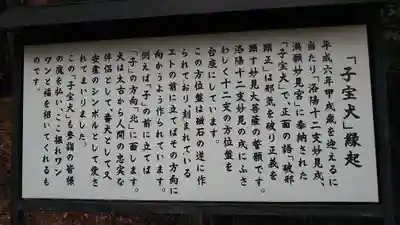 「子宝犬」縁起
平成六年甲戌歳を迎えるに
当たり「洛陽十二支妙見戌、
満願妙見宮」に奉納された
「子宝犬」で、正面の語「破邪
顕正」は邪気を破り正義を
顕す妙見大菩薩の誓願です。
洛陽十二支妙見の戌にふさ
わしく十二支の方位盤を
台座にしています。
この方位盤は磁石の逆に作
られており、刻まれている
エトの前に立てばその方向に
向かうよう作られています。
例えば「子」の前に立てば
「子」の方向（北）に面します。
犬は太古から人間の忠実な
伴侶として、番犬として又
安産のシンボルとして愛さ
れてまいりました。
この「子宝犬」も参詣の皆様
の魔を払いで、振れワン
ワンと福を招いてくれるも
のです。